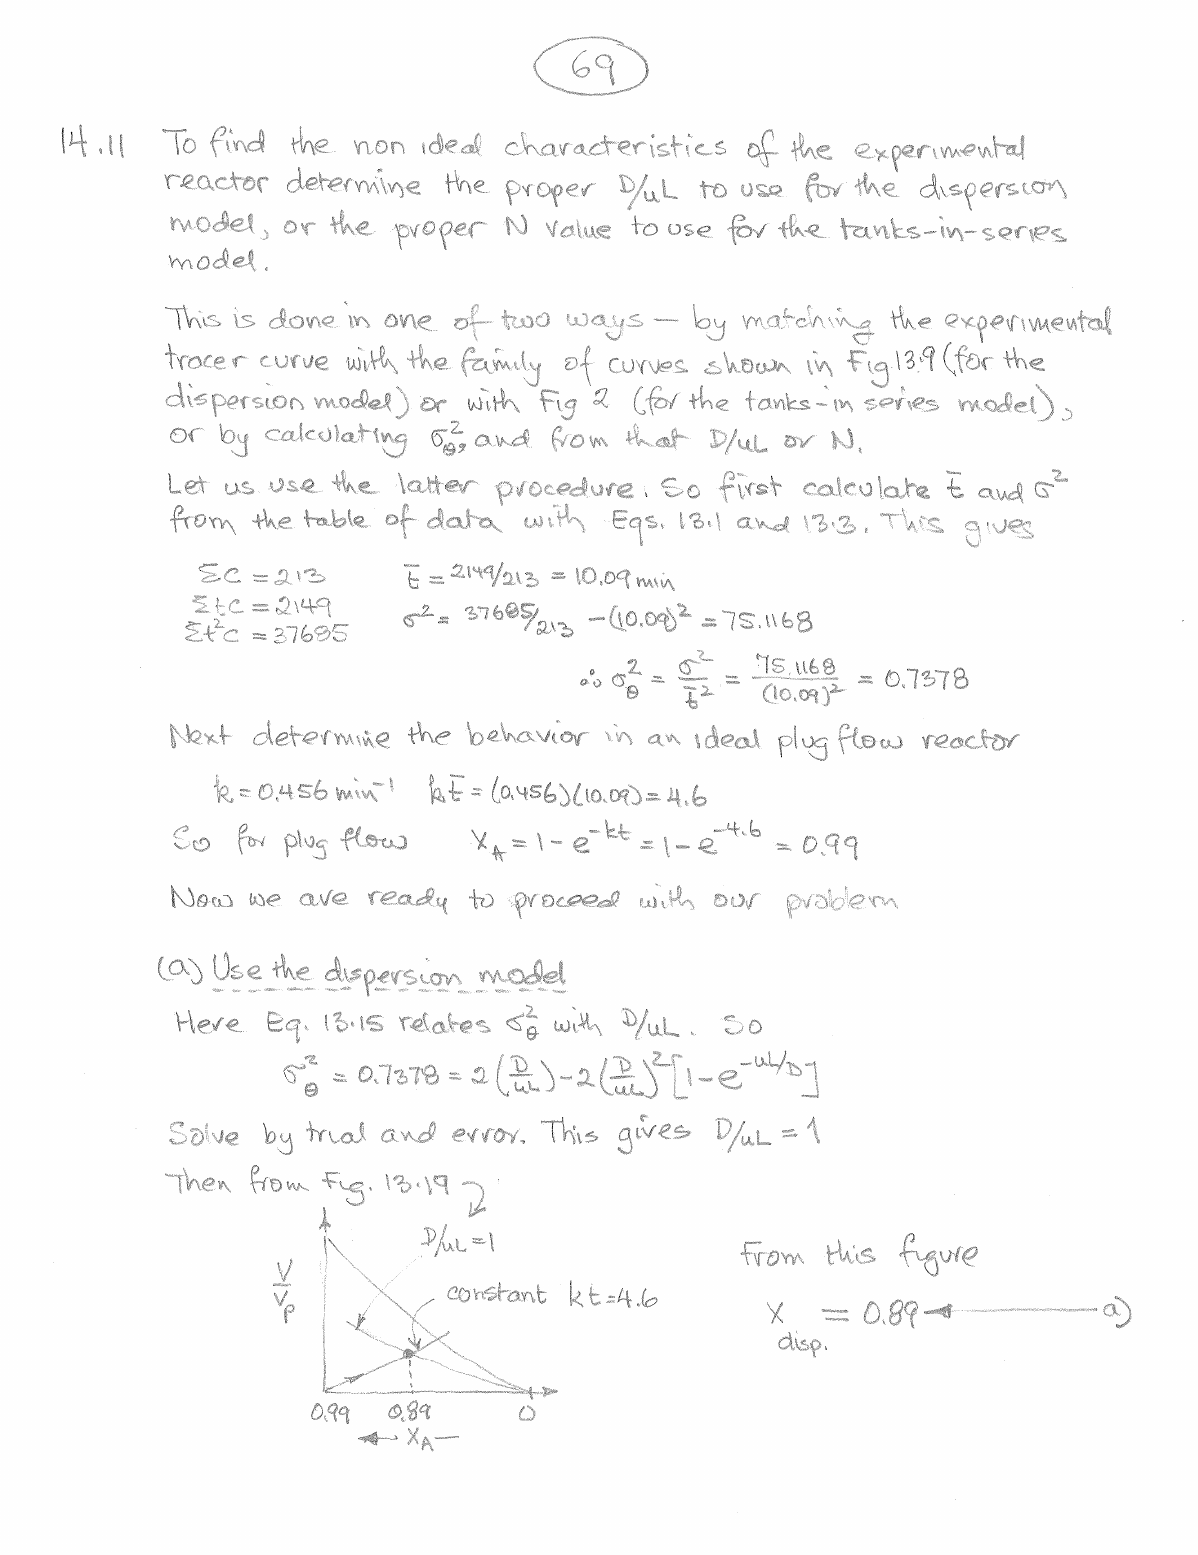 69
14.11 To find the non ideal characteristics of the experimental
reactor determine the proper D/uL to use for the dispersion
model, or the proper N value to use for the tanks-in-series
model.
This is done in one of two ways — by matching the experimental
tracer curve with the family of curves shown in Fig 13.9 (for the
dispersion model) or with Fig 2 (for the tanks-in series model),
or by calculating σθ², and from that D/uL or N.
Let us use the latter procedure. So first calculate t̄ and σ²
from the table of data with Eqs. 13.1 and 13.3. This gives
ΣC = 213 t̄ = 2149/213 = 10.09 min
ΣtC = 2149 σ² = 37685/213 - (10.09)² = 75.1168
Σt²C = 37685
∴ σθ² = σ²/t̄² = 75.1168/(10.09)² = 0.7378
Next determine the behavior in an ideal plug flow reactor
k = 0.456 min⁻¹ kt̄ = (0.456)(10.09) = 4.6
So for plug flow X_A = 1 - e^-kt = 1 - e^-4.6 = 0.99
Now we are ready to proceed with our problem
(a) Use the dispersion model
Here Eq. 13.15 relates σθ² with D/uL. So
σθ² = 0.7378 = 2(D/uL) - 2(D/uL)²[1 - e^-uL/D]
Solve by trial and error. This gives D/uL = 1
Then from Fig. 13.19
D/uL = 1
From this figure
V/Vp
constant kt = 4.6
X disp. = 0.89 a)
0.99 0.89 0
X_A